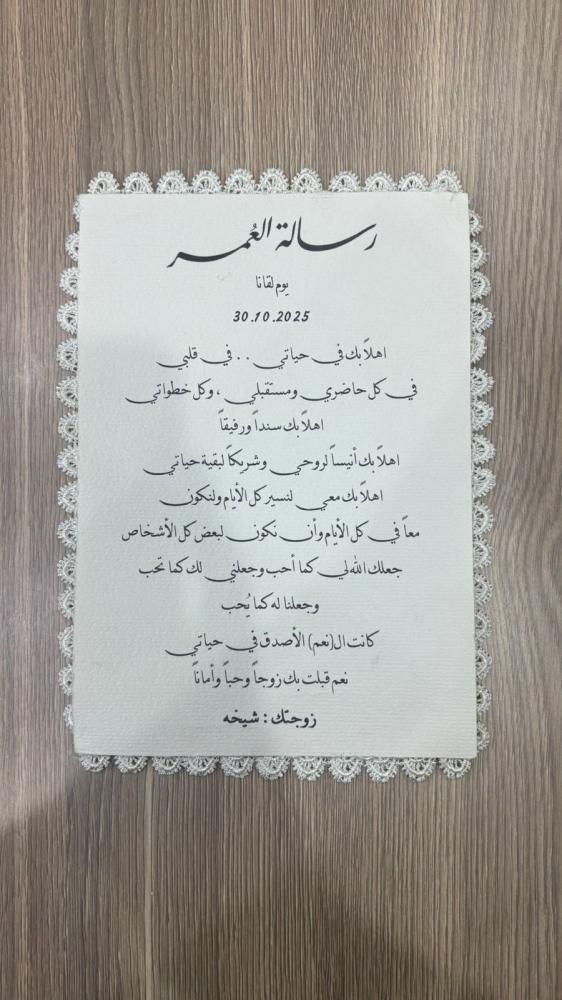 رسالة العُمر
يوم لقانا
30.10.2025
اهلاً بك في حياتي . . في قلبي
في كل حاضري ومستقبلي ، وكل خطواتي
اهلاً بك سنداً ورفيقاً
اهلاً بك أنيساً لروحي وشريكاً لبقية حياتي
اهلاً بك معي لنسير كل الأيام ولنكون
معاً في كل الأيام وأن نكون لبعض كل الأشخاص
جعلك الله لي كما أحب وجعلني لك كما تحب
وجعلنا له كما يُحب
كانت ال(نعم) الأصدق في حياتي
نعم قبلت بك زوجاً وحباً وأماناً
زوجتك : شيخه